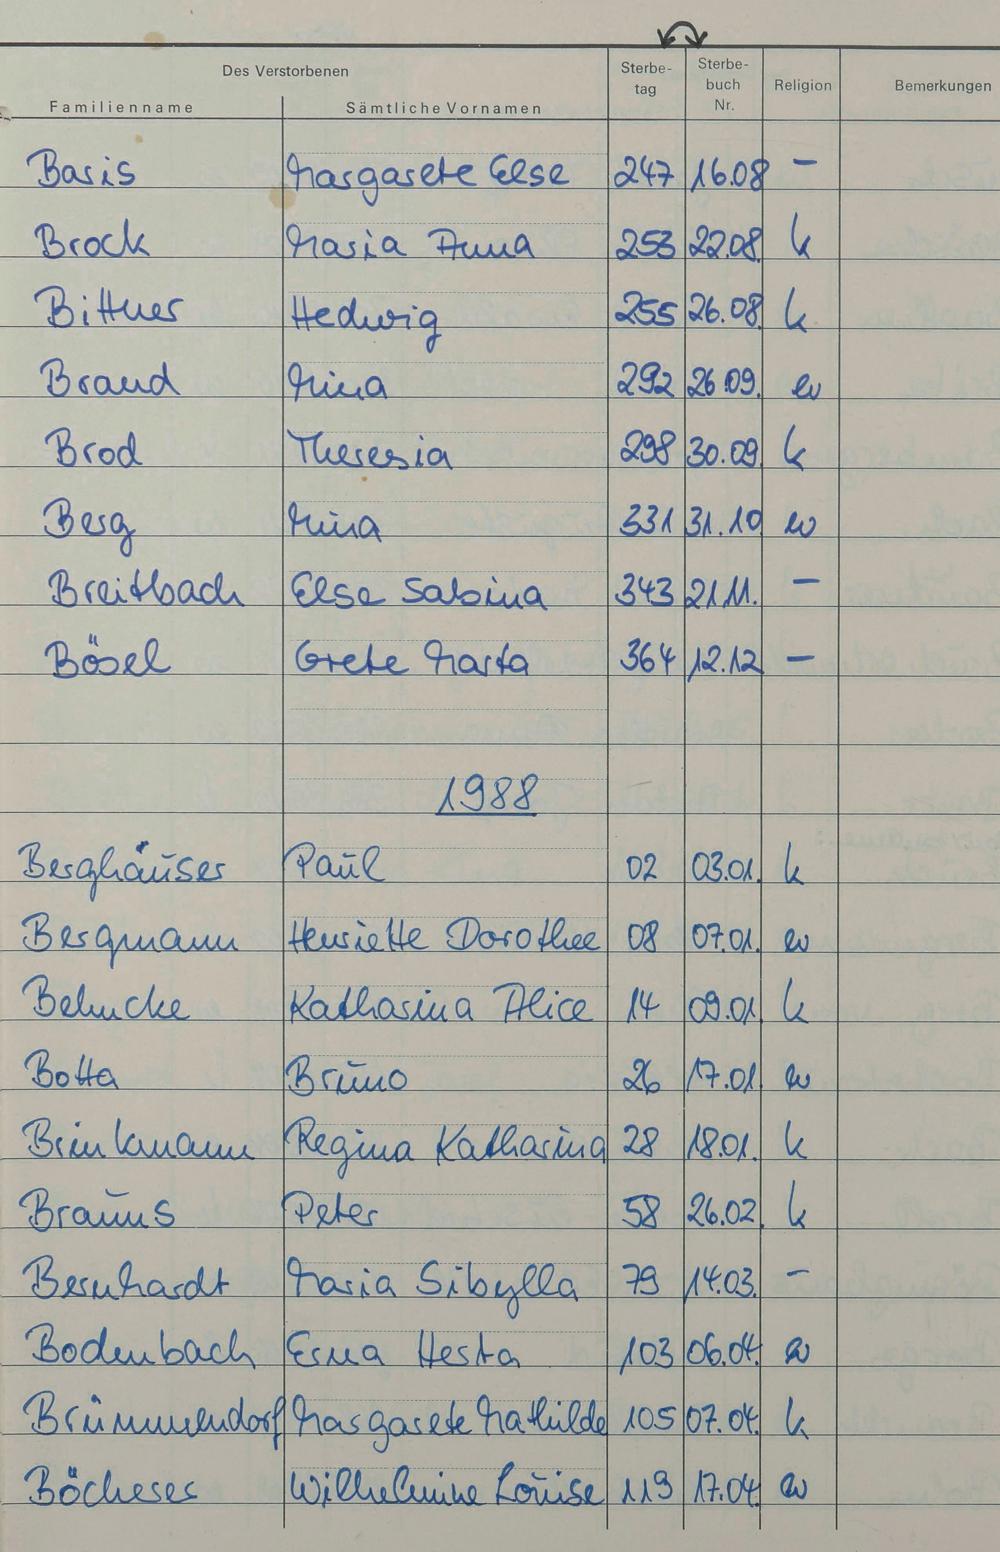 Des Verstorbenen
Familienname Sämtliche Vornamen Sterbe-tag Sterbe-buch Nr. Religion Bemerkungen
Baris Margarete Else 247 16.08 –
Brock Maria Anna 253 22.08. k
Bittner Hedwig 255 26.08. k
Brand Mina 292 26.09. ev
Brod Theresia 298 30.09. k
Berg Mina 331 31.10 ev
Breitbach Else Sabina 343 21.11. –
Bösel Grete Marta 364 12.12 –
1988
Berghäuser Paul 02 03.01. k
Bergmann Henriette Dorothee 08 07.01. ev
Behncke Katharina Alice 14 09.01. k
Botta Bruno 26 17.01. ev
Brinkmann Regina Katharina 28 18.01. k
Brauns Peter 58 26.02. k
Bernhardt Maria Sibylla 79 14.03. –
Bodenbach Erna Herta 103 06.04. ev
Brümmendorf Margarete Mathilde 105 07.04. k
Böcheres Wilhelmine Louise 119 17.04. ev